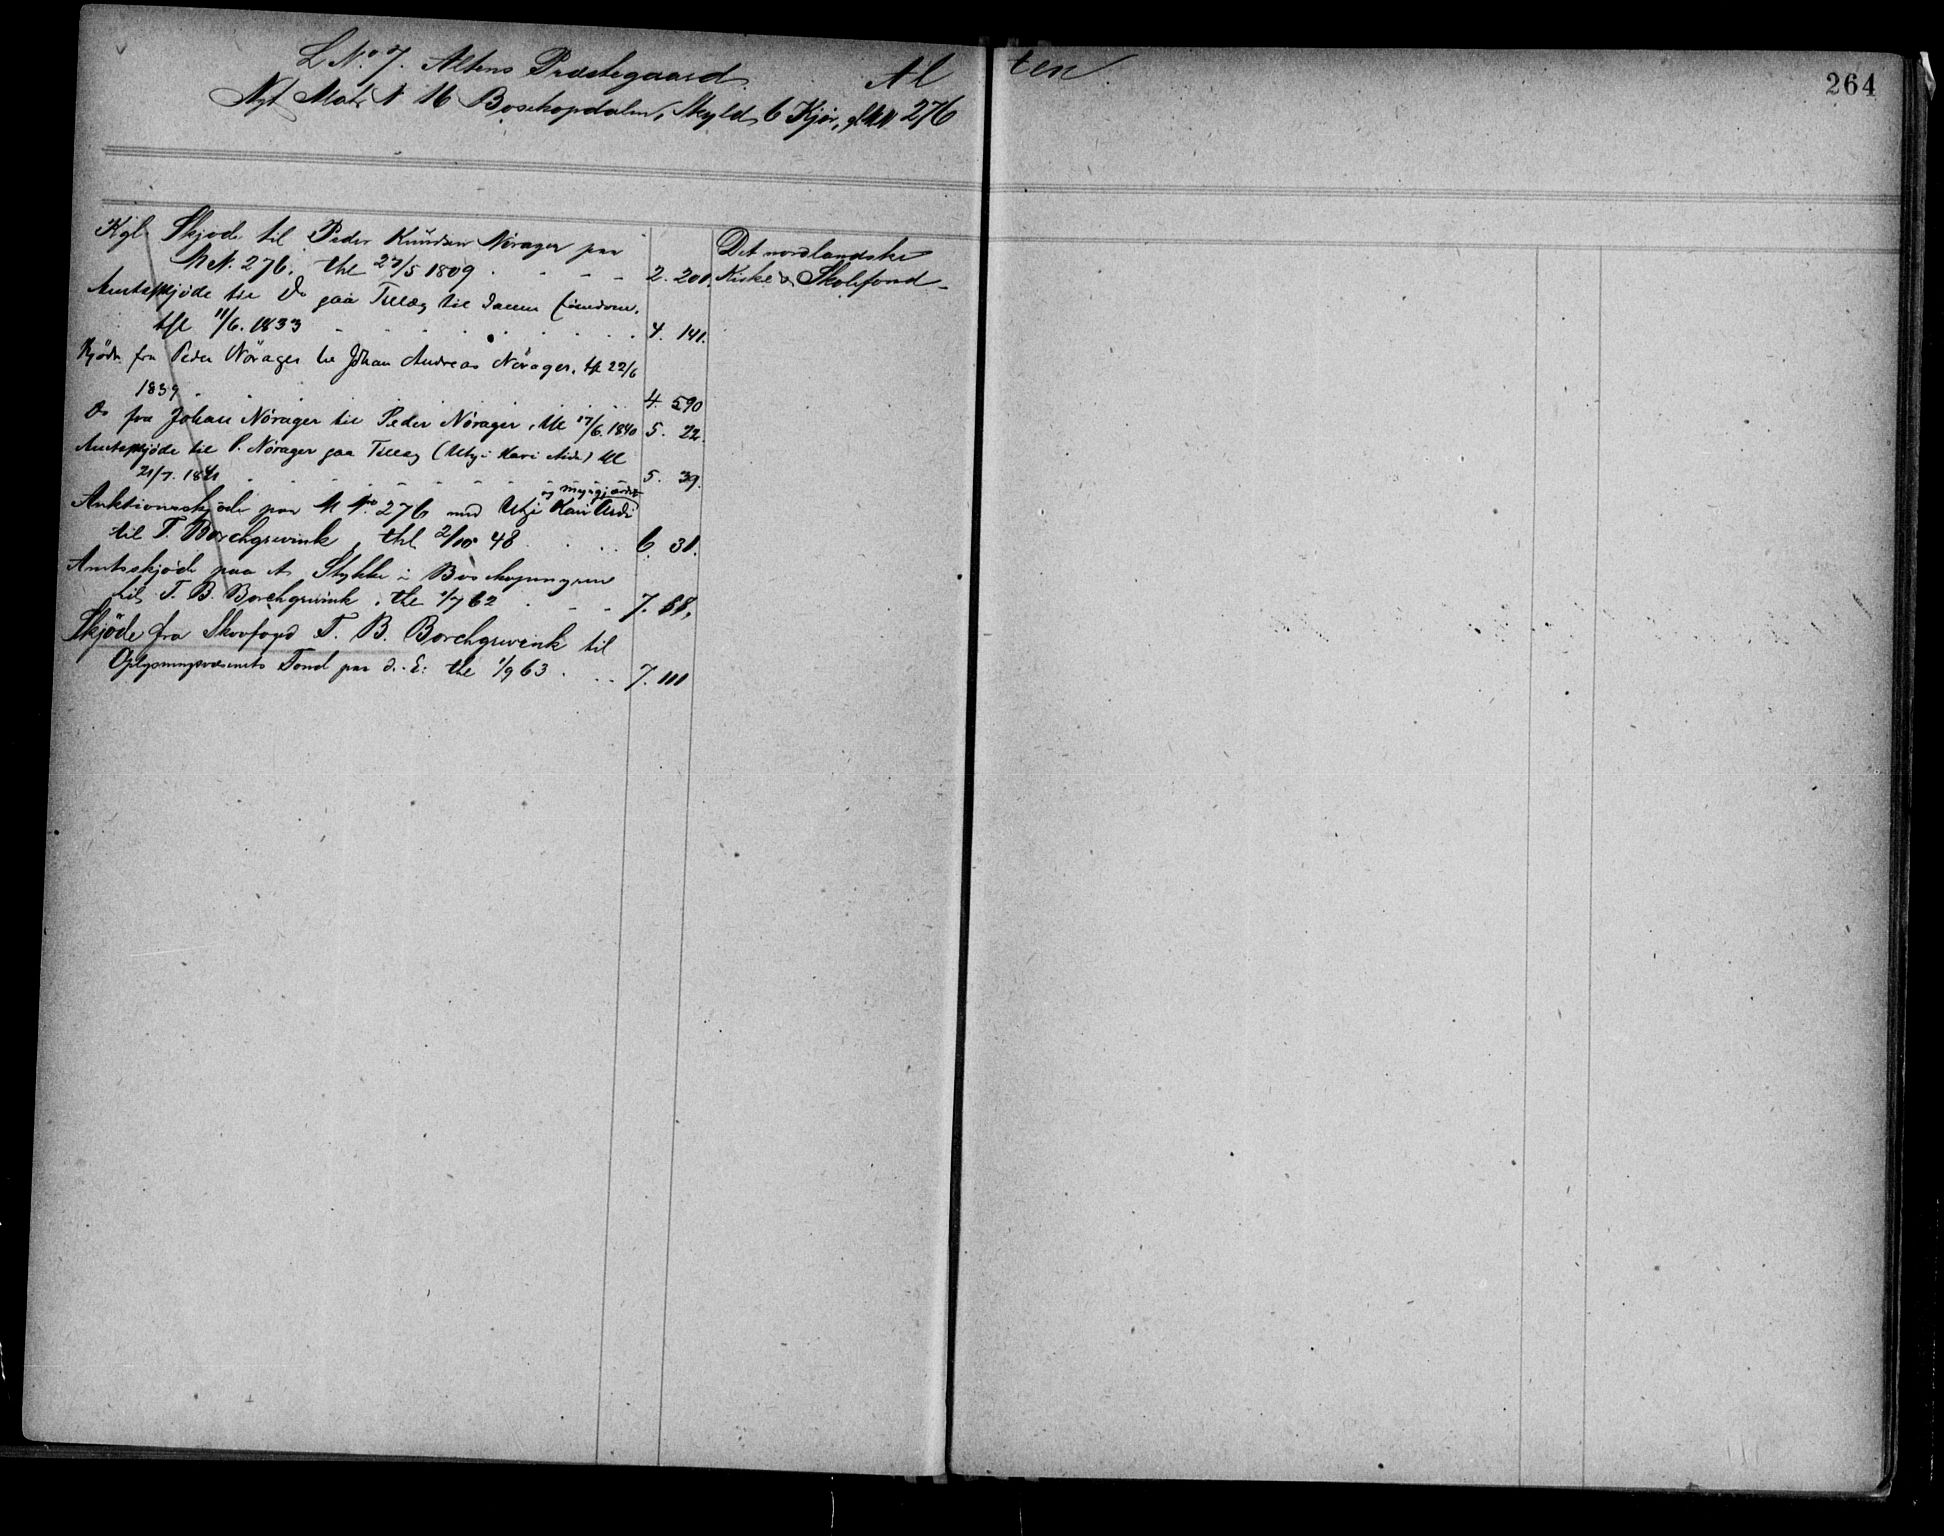 L. No. 7. Altens Præstegaard. Alten.
264
Nyt Mat. N 16 Bosekopdalen, Skyld 6 Kjør, gl. M.N. 276
Kgl. Skjøde til Peder Knudsen Nørager paa
M.N. 276. thl 27/5 1809 . - - - 2. 201.
Det nordlandske
Kirke & Skolefond -
Amtsskjøde til Do paa Tillæg til samme Eiendom.
thl 11/6. 1833 . . . . . . . 4. 141.
Skjøde fra Peder Nørager til Johan Andreas Nørager. thl 22/6
1839 . . . . . . . 4. 590
Do fra Johan Nørager til Peder Nørager, thl 17/6. 1840 5. 22.
Amtsskjøde til P. Nørager paa Tillæg (Utgi Kari Aidi) thl
21/7. 1841 - - - - - - - 5. 39.
Auktionsskjøde paa M No. 276 med Utgi Kari Aidi
til T. Borchgrevink, thl 2/10 48 . . . . 6. 31.
Amtsskjøde paa et Stykke i
til T. B. Borchgrevink, thl 1/7 62 . - - - 7. 58.
Skjøde fra Skovfogd T. B. Borchgrevink til
Oplysningsvæsenets Fond paa d. E: thl 1/9 63 . . . 7. 111